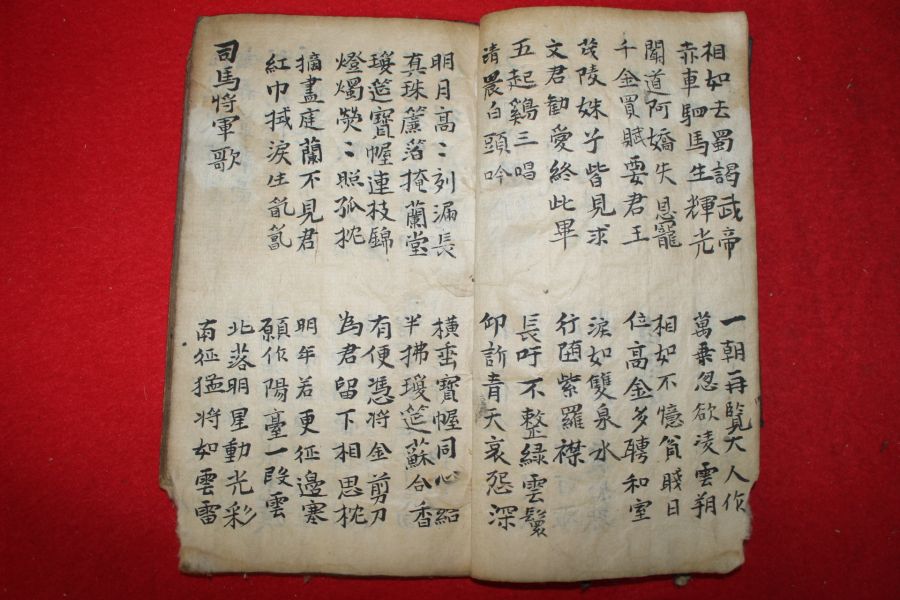 相如去蜀謁武帝
赤車駟馬生輝光
一朝再覽大人作
萬乗忽欲凌雲朔
聞道阿嬌失恩寵
千金買賦要君王
相如不憶貧賤日
位高金多聘和室
茂陵姝子皆見求
文君勸愛終此畢
淚如雙泉水
行随紫羅襟
五起鷄三唱
清晨白頭吟
長吁不整緑雲鬟
仰訢青天哀怨深
明月高〻刻漏長
真珠簾落掩蘭堂
橫垂寶幄同心結
半拂瓊筵蘇合香
瓊筵寶幄連枝錦
燈燭熒〻照孤枕
有便憑將金剪刀
為君留下相思枕
摘盡庭蘭不見君
紅巾拭淚生氤氳
明年若更征邊塞
願作陽臺一段雲
司馬將軍歌
北落明星動光彩
南征猛将如雲雷